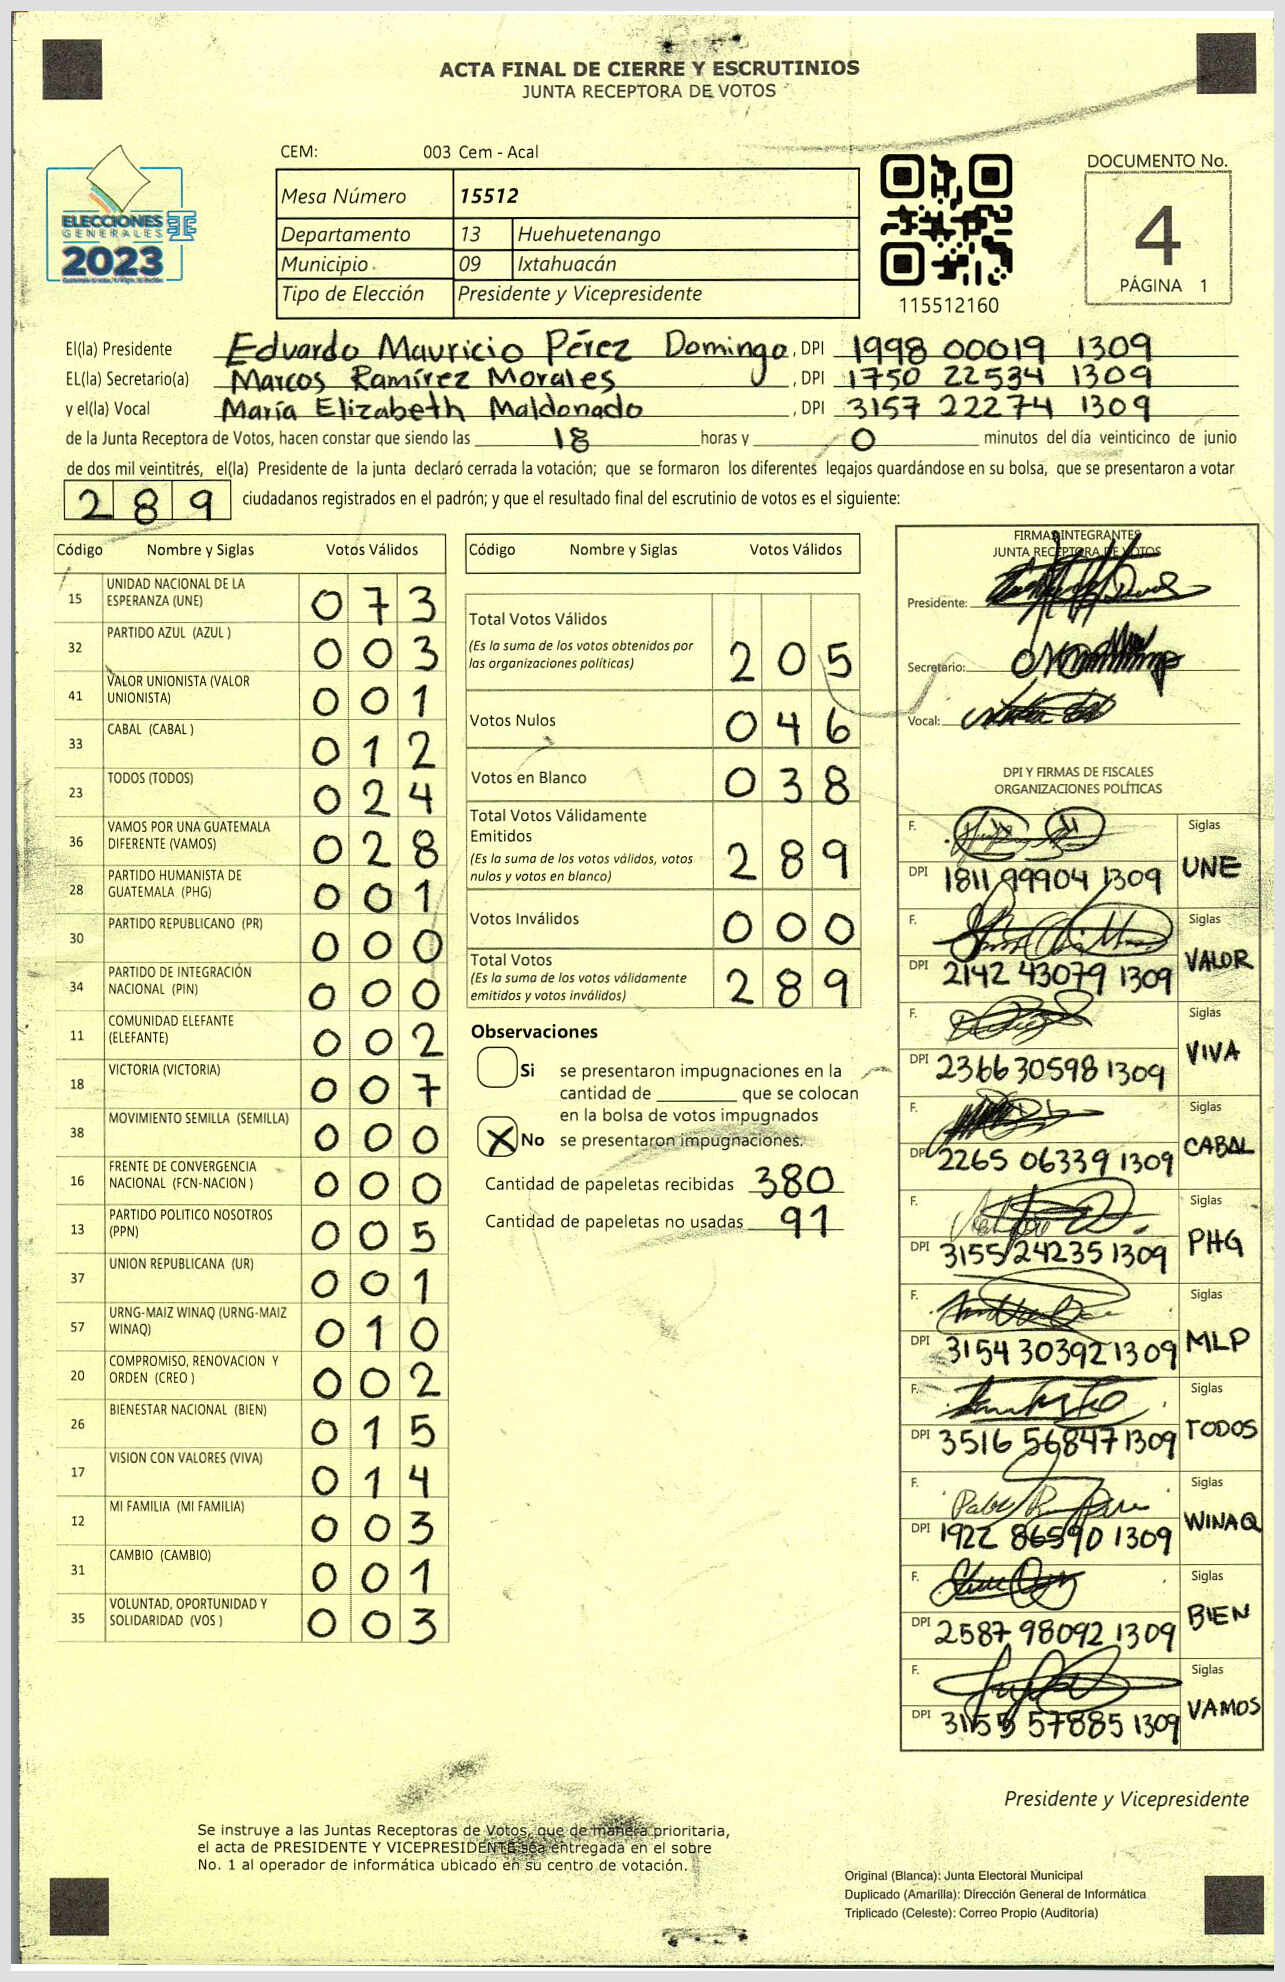 ACTA FINAL DE CIERRE Y ESCRUTINIOS
JUNTA RECEPTORA DE VOTOS
CEM: 003 Cem - Acal
ELECCIONES
GENERALES
2023
Mesa Número 15512
Departamento 13 Huehuetenango
Municipio 09 Ixtahuacán
Tipo de Elección Presidente y Vicepresidente
115512160
DOCUMENTO No.
4
PÁGINA 1
El(la) Presidente Eduardo Mauricio Pérez Domingo, DPI 1998 00019 1309
EL(la) Secretario(a) Marcos Ramírez Morales, DPI 1750 22534 1309
y el(la) Vocal María Elizabeth Maldonado, DPI 3157 22274 1309
de la Junta Receptora de Votos, hacen constar que siendo las 18 horas y 0 minutos del día veinticinco de junio
de dos mil veintitrés, el(la) Presidente de la junta declaró cerrada la votación; que se formaron los diferentes legajos guardándose en su bolsa, que se presentaron a votar
289 ciudadanos registrados en el padrón; y que el resultado final del escrutinio de votos es el siguiente:
Código Nombre y Siglas Votos Válidos
15 UNIDAD NACIONAL DE LA
ESPERANZA (UNE) 073
32 PARTIDO AZUL (AZUL ) 003
41 VALOR UNIONISTA (VALOR
UNIONISTA) 001
33 CABAL (CABAL ) 012
23 TODOS (TODOS) 024
36 VAMOS POR UNA GUATEMALA
DIFERENTE (VAMOS) 028
28 PARTIDO HUMANISTA DE
GUATEMALA (PHG) 001
30 PARTIDO REPUBLICANO (PR) 000
34 PARTIDO DE INTEGRACIÓN
NACIONAL (PIN) 000
11 COMUNIDAD ELEFANTE
(ELEFANTE) 002
18 VICTORIA (VICTORIA) 007
38 MOVIMIENTO SEMILLA (SEMILLA) 000
16 FRENTE DE CONVERGENCIA
NACIONAL (FCN-NACION ) 000
13 PARTIDO POLITICO NOSOTROS
(PPN) 005
37 UNION REPUBLICANA (UR) 001
57 URNG-MAIZ WINAQ (URNG-MAIZ
WINAQ) 010
20 COMPROMISO, RENOVACION Y
ORDEN (CREO ) 002
26 BIENESTAR NACIONAL (BIEN) 015
17 VISION CON VALORES (VIVA) 014
12 MI FAMILIA (MI FAMILIA) 003
31 CAMBIO (CAMBIO) 001
35 VOLUNTAD, OPORTUNIDAD Y
SOLIDARIDAD (VOS ) 003
Código Nombre y Siglas Votos Válidos
Total Votos Válidos
(Es la suma de los votos obtenidos por
las organizaciones políticas) 205
Votos Nulos 046
Votos en Blanco 038
Total Votos Válidamente
Emitidos
(Es la suma de los votos válidos, votos
nulos y votos en blanco) 289
Votos Inválidos 000
Total Votos
(Es la suma de los votos válidamente
emitidos y votos inválidos) 289
Observaciones
Si se presentaron impugnaciones en la
cantidad de ________ que se colocan
en la bolsa de votos impugnados
X No se presentaron impugnaciones.
Cantidad de papeletas recibidas 380
Cantidad de papeletas no usadas 91
FIRMAS INTEGRANTES
JUNTA RECEPTORA DE VOTOS
Presidente:
Secretario:
Vocal:
DPI Y FIRMAS DE FISCALES
ORGANIZACIONES POLÍTICAS
F. Siglas
DPI 1811 99904 1309 UNE
F. Siglas
DPI 2142 43079 1309 VALOR
F. Siglas
DPI 2366 30598 1309 VIVA
F. Siglas
DPI 2265 06339 1309 CABAL
F. Siglas
DPI 3155 24235 1309 PHG
F. Siglas
DPI 3154 30392 1309 MLP
F. Siglas
DPI 3516 56847 1309 TODOS
F. Siglas
DPI 1922 86590 1309 WINAQ
F. Siglas
DPI 2587 98092 1309 BIEN
F. Siglas
DPI 3155 57885 1309 VAMOS
Presidente y Vicepresidente
Se instruye a las Juntas Receptoras de Votos, que de manera prioritaria,
el acta de PRESIDENTE Y VICEPRESIDENTE sea entregada en el sobre
No. 1 al operador de informática ubicado en su centro de votación.
Original (Blanca): Junta Electoral Municipal
Duplicado (Amarilla): Dirección General de Informática
Triplicado (Celeste): Correo Propio (Auditoría)